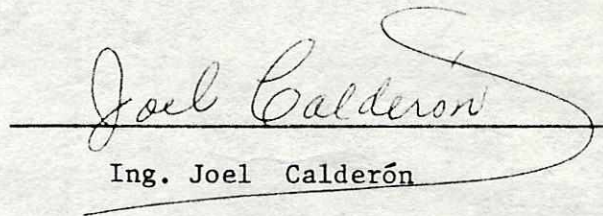 Joel Calderón
Ing. Joel Calderón